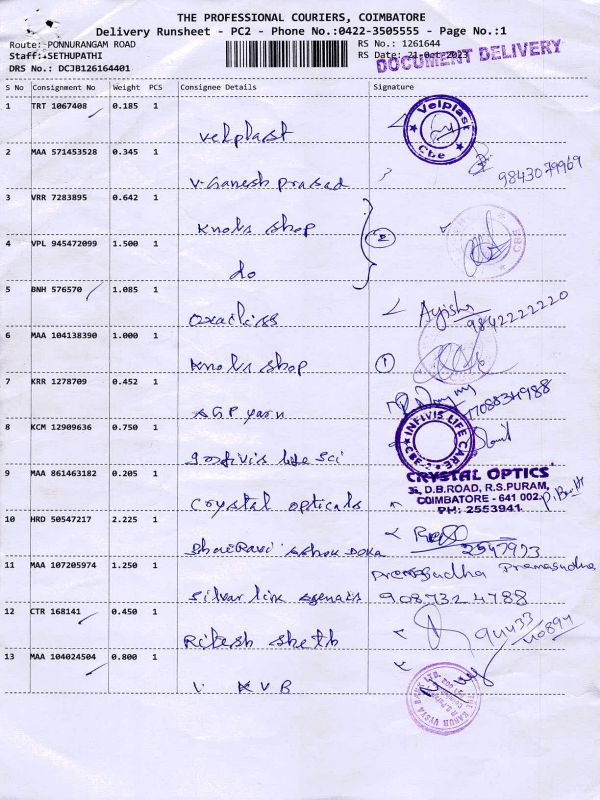 THE PROFESSIONAL COURIERS, COIMBATORE
Delivery Runsheet - PC2 - Phone No.:0422-3505555 - Page No.:1
Route: PONNURANGAM ROAD
Staff: SETHUPATHI
DRS No.: DCJB126164401
RS No.: 1261644
RS Date: 21-Oct-2023
DOCUMENT DELIVERY
S No Consignment No Weight PCS Consignee Details Signature
1 TRT 1067408 0.185 1 Velplast
Velplast
Cbe
2 MAA 571453528 0.345 1 V. Ganesh prasad
9843079969
3 VRR 7283895 0.642 1 Knobs shop
2
CBE
4 VPL 945472099 1.500 1 do
5 BNH 576570 1.085 1
Ayisha
9842222220
6 MAA 104138390 1.000 1 Knobs shop
1
7 KRR 1278709 0.452 1 AGP yarn
8 KCM 12909636 0.750 1 Life Sci
INFIVIS LIFE CARE
CBE-2
9 MAA 861463182 0.205 1 Crystal opticals
CRYSTAL OPTICS
D.B.ROAD, R.S.PURAM,
COIMBATORE - 641 002.
PH: 2553941
10 HRD 50547217 2.225 1 Ashok
2547973
11 MAA 107205974 1.250 1 Silvar link agencis
Premasudha Premasudha
9087324788
12 CTR 168141 0.450 1 Ritesh Sheth
94433
13 MAA 104024504 0.800 1 KVB
THE KARUR VYSYA BANK LTD.